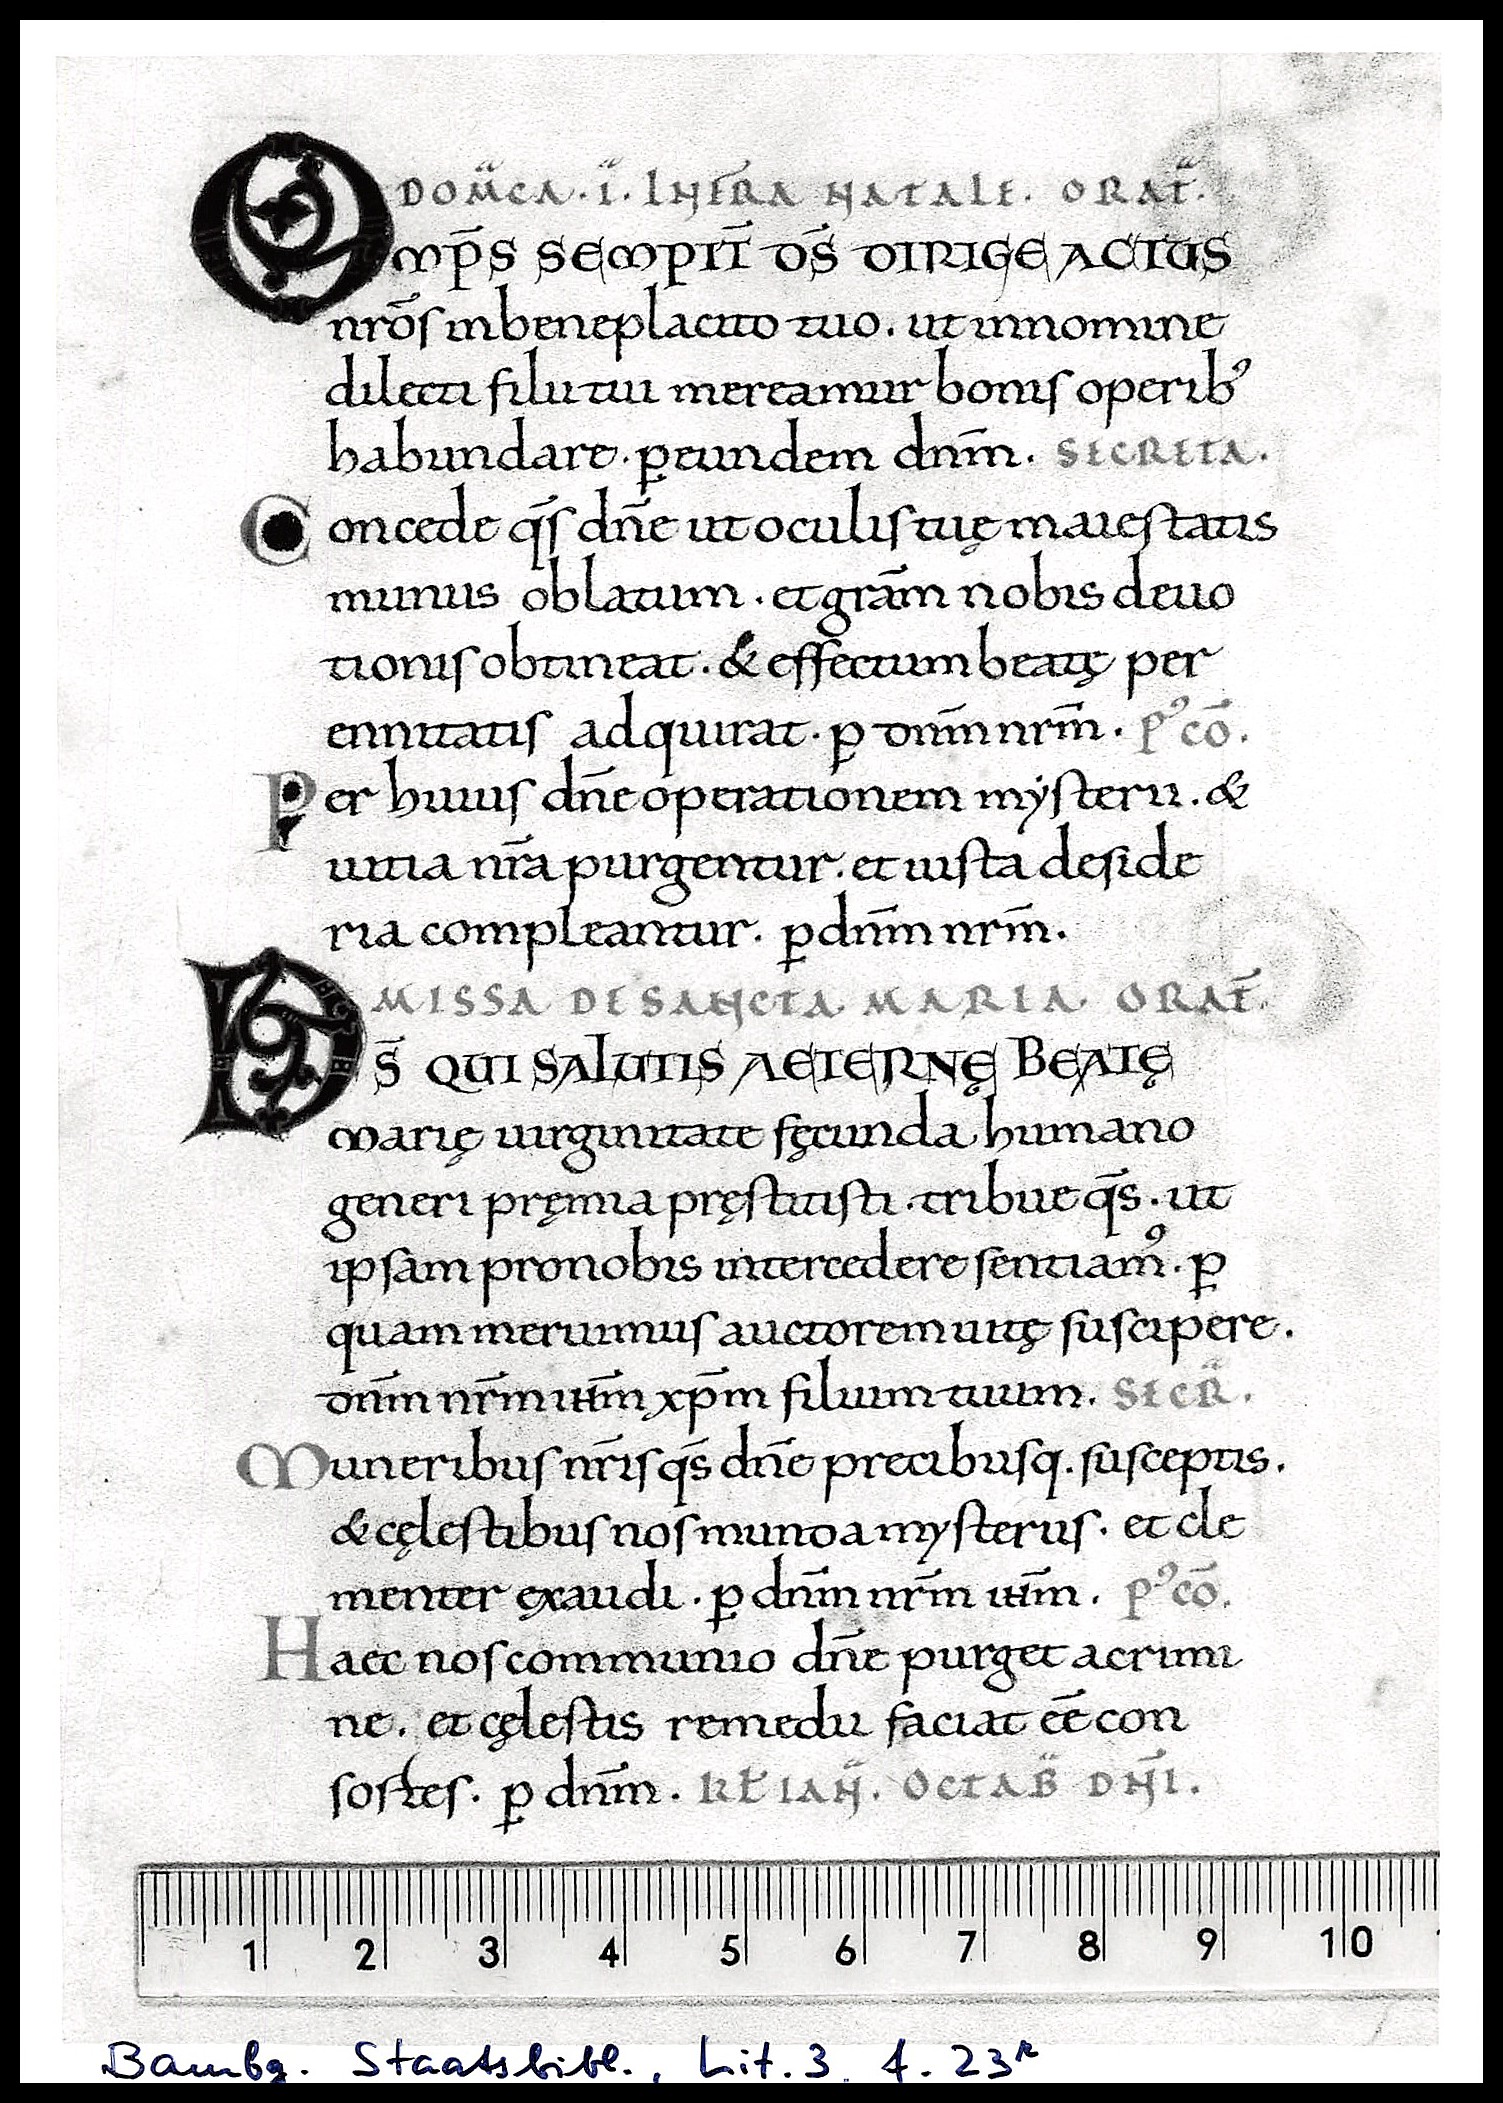 DOM̄CA · I · INFRA NATALE · ORAT̄ ·
OMP̄S SEMPIT̄ D̄S DIRIGE ACTUS
nrōs in beneplacito tuo . ut innomine
dilecti filii tui mereamur bonis operibꝰ
habundare . ꝑ eundem dnm̄ . SECRETA .
Concede qs̄ dn̄e ut oculis tuę maiestatis
munus oblatum . et grām nobis deuo
tionis obtineat . & effectum beatę per
ennitatis adquirat . ꝑ dnm̄ nrm̄ . Pꝰ cō .
Per huius dn̄e operationem mẏsterii . &
uitia nr̄a purgentur . et iusta deside
ria compleantur . ꝑ dnm̄ nrm̄ .
MISSA DE SANCTA MARIA . ORAT̄ .
DS̄ QUI SALUTIS AETERNĘ BEATĘ
marię uirginitate fęcunda humano
generi pręmia pręstitisti . tribue qs̄ . ut
ipsam pro nobis intercedere sentiamꝰ . ꝑ
quam meruimus auctorem uitę suscipere .
dnm̄ nr̄m ihm̄ xp̄m filium tuum . SECR̄ .
Muneribus nr̄is qs̄ dn̄e precibusq . susceptis .
& cęlestibus nos munda mysteriis . et cle
menter exaudi . ꝑ dnm̄ nrm̄ ihm̄ . Pꝰ cō .
Haec nos communio dn̄e purget a crimi
ne . et cęlestis remedii faciat ēē con
sortes . ꝑ dnm̄ . Kł IAN̄ . OCTAB̄ DN̄I .
1 2 3 4 5 6 7 8 9 10
Bambg. Staatsbibl., Lit. 3, f. 23r